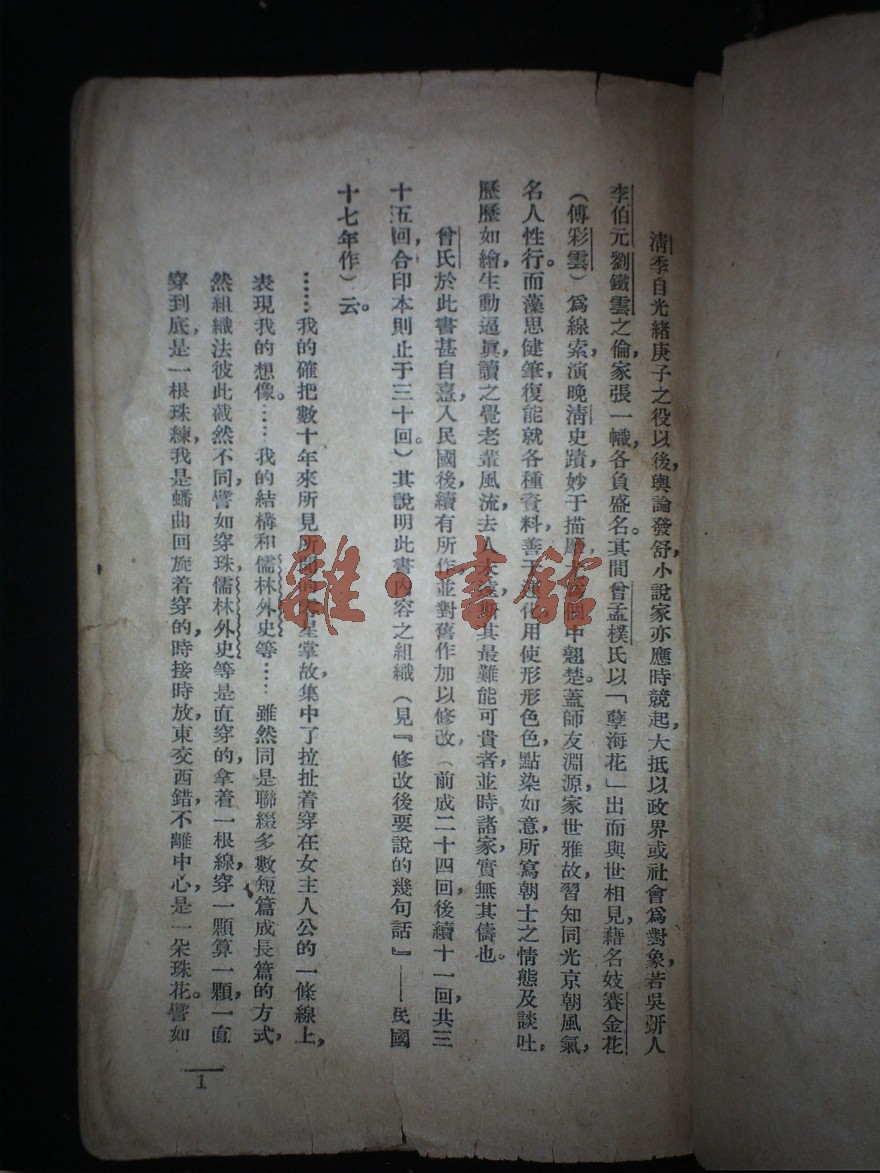 清季自光緒庚子之役以後,輿論發舒,小說家亦應時競起,大抵以政界或社會爲對象,若吳趼人
李伯元劉鐵雲之倫,家張一幟,各負盛名。其間曾孟樸氏以「孽海花」出而與世相見,藉名妓賽金花
(傅彩雲)爲線索,演晚清史蹟,妙于描 中翹楚。蓋師友淵源,家世雅故,習知同光京朝風氣,
名人性行。而藻思健筆,復能就各種資料,善于運化,用使形形色色,點染如意,所寫朝士之情態及談吐,
歷歷如繪,生動逼眞,讀之覺老輩風流,去人未遠,斯其最難能可貴者,並時諸家,實無其儔也。
曾氏於此書甚自憙,入民國後,續有所作,並對舊作加以修改,(前成二十四回,後續十一回,共三
十五回,合印本則止于三十回。)其說明此書內容之組織(見『修改後要說的幾句話』——民國
十七年作)云。
……我的確把數十年來所見所聞的零星掌故,集中了拉扯着穿在女主人公的一條線上,
表現我的想像。……我的結構和儒林外史等……雖然同是聯綴多數短篇成長篇的方式,
然組織法彼此截然不同,譬如穿珠,儒林外史等是直穿的,拿着一根線,穿一顆算一顆,一直
穿到底,是一根珠練,我是蟠曲回旋着穿的,時接時放,東交西錯,不離中心,是一朵珠花。譬如
1
雜·書館